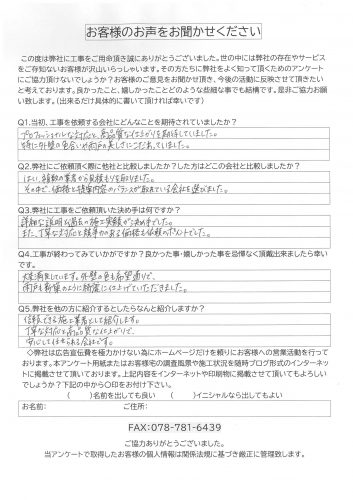 お客様のお声をお聞かせください
この度は弊社に工事をご用命頂き誠にありがとうございました。世の中には弊社の存在やサービス
をご存知ないお客様が沢山いらっしゃいます。その方たちに弊社をよく知って頂くためのアンケート
にご協力頂けないでしょうか?お客様のご意見をお聞かせ頂き、今後の活動に反映させて頂きたい
と考えております。良かったこと、嬉しかったことどのような些細な事でも結構です。是非ご協力お願
い致します。(出来るだけ具体的に書いて頂ければ幸いです)
Q1.当初、工事を依頼する会社にどんなことを期待されていましたか?
プロフェッショナルな対応と、高品質な仕上がりを期待していました。
特に外壁の色合いや雨戸の美しさにこだわっていました。
Q2.弊社にご依頼頂く際に他社と比較しましたか?した方はどこの会社と比較しましたか?
はい、複数の業者から見積もりを取りました。
その中で、価格と提案内容のバランスが取れている会社を選びました。
Q3.弊社に工事をご依頼頂いた決め手は何ですか?
詳細な説明と過去の施工実績が決め手でした。
また、丁寧な対応と競争力のある価格も依頼のポイントでした。
Q4.工事が終わってみていかがですか?良かった事・嬉しかった事を忌憚なく頂戴出来ましたら幸
いです。
大変満足しています。外壁の色も希望通りで、
雨戸も新築のように綺麗に仕上げていただきました。
Q5.弊社を他の方に紹介するとしたらなんと紹介しますか?
信頼できる施工業者として紹介します。
丁寧な対応と高品質な仕上がりで、
安心して任せられる会社です。
◇弊社は広告宣伝費を極力かけない為にホームページだけを頼りにお客様への営業活動を行って
おります。本アンケート用紙またはお客様宅の調査風景や施工状況を随時ブログ形式のインターネッ
トに掲載させて頂いております。上記内容をインターネットや印刷物に掲載させて頂いてもよろしい
でしょうか?下記の中から〇印をお付け下さい。
( )名前を出しても良い ( )イニシャルなら出してもよい
お名前: ご住所:
FAX:078-781-6439
ご協力ありがとうございました。
当アンケートで取得したお客様の個人情報は関係法規に基づき厳正に管理致します。